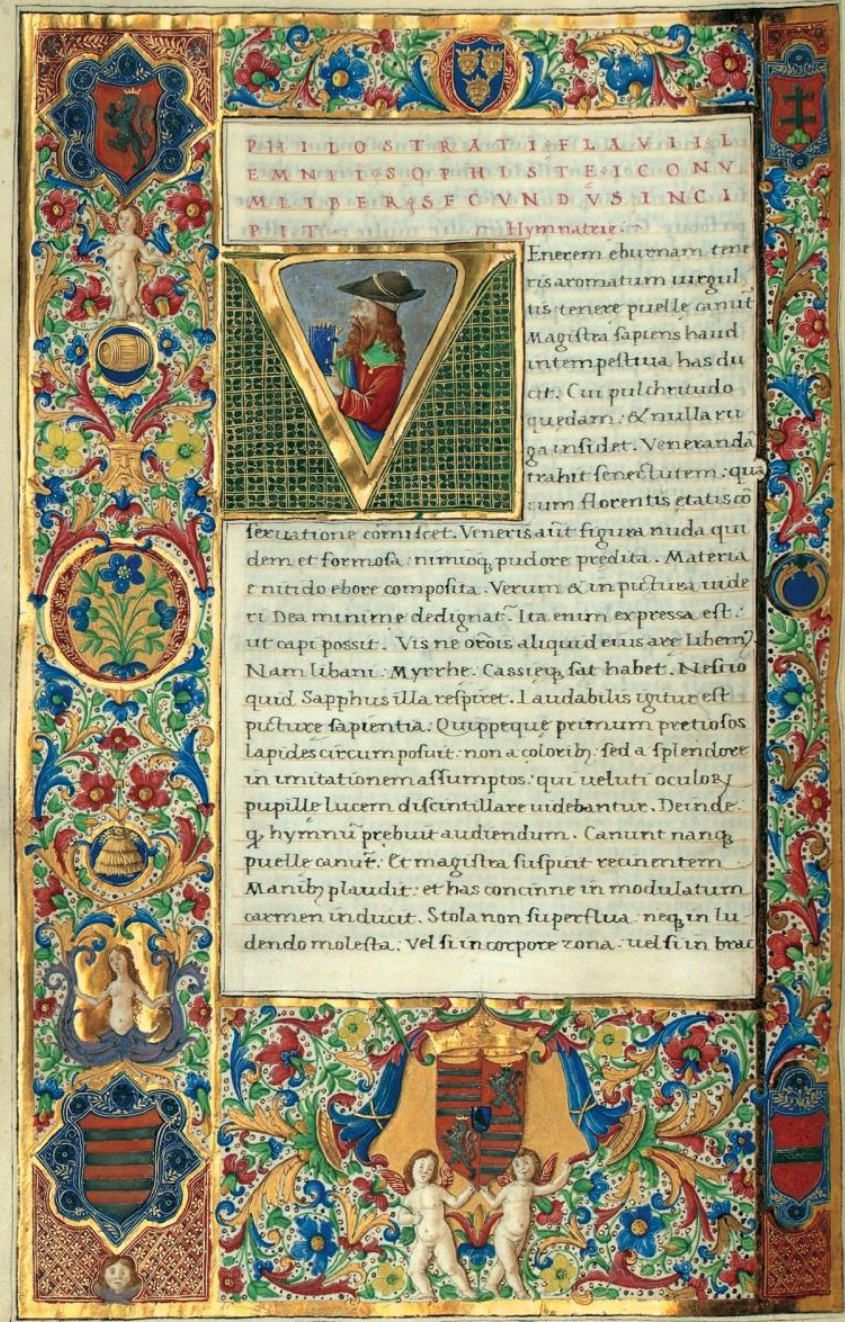 PHILOSTRATI FLAVII L
EMNII SOPHISTE ICONV
M LIBER SECVNDVS INCI
PIT Hymnatrie.
VEnerem eburnam tene
ris aromatum uirgul
tis tenere puelle canūt
Magistra sapiens haud
intempestiua has du
cit. Cui pulchritudo
quedam: & nulla ru
ga insidet. Venerandā
trahit senectutem: qua
cum florentis etatis cō
seruatione cōmiscet. Veneris aūt figura nuda qui
dem et formosa: nimioq; pudore predita. Materia
e nitido ebore composita. Verum & in pictura uide
ri Dea minime dedignat̃. Ita enim expressa est:
ut capi possit. Vis ne or̃ois aliquid eius are libem⁹?
Nam libani: Myrrhe: Cassieq; sat habet. Nescio
quid Sapphus illa respiret. Laudabilis igitur est
picture sapientia: Quippeque primum pretiosos
lapides circumposuit: non a colorib; sed a splendore
in imitationem assumptos: qui ueluti oculoꝝ
pupille lucem discintillare uidebantur. Deinde:
q; hymnū prebuit audiendum. Canunt nanq;
puelle canūt: Et magistra suspicit recinentem
Manib; plaudit: et has concinne in modulatum
carmen inducit. Stola non superflua: neq; in lu
dendo molesta: Vel si in corpore zona: uel si in brac